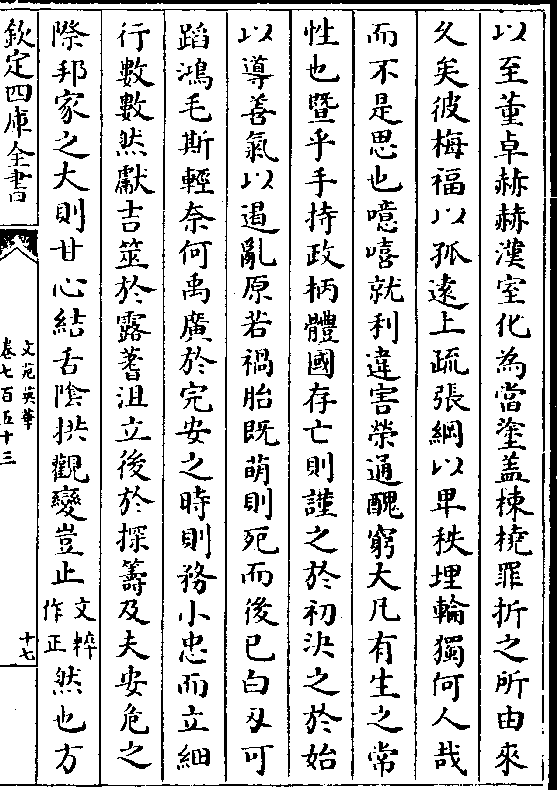 以至董卓赫赫漢室化為當塗盖棟橈罪折之所由來
久矣彼梅福以孤逺上疏張綱以卑秩埋輪獨何人哉
而不是思也噫嘻就利違害榮通醜窮大凡有生之常
性也暨乎手持政柄體國存亡則謹之於初決之於始
以導善氣以遏亂原若禍胎既萌則死而後已白刄可
蹈鴻毛斯輕奈何禹廣於完安之時則務小忠而立細
行數數然獻吉筮於露蓍沮立後於探籌及夫安危之
際邦家之大則甘心結舌隂拱觀變豈止文粹作正然也方
欽定四庫全書
文苑英華
卷七百五十三
十七